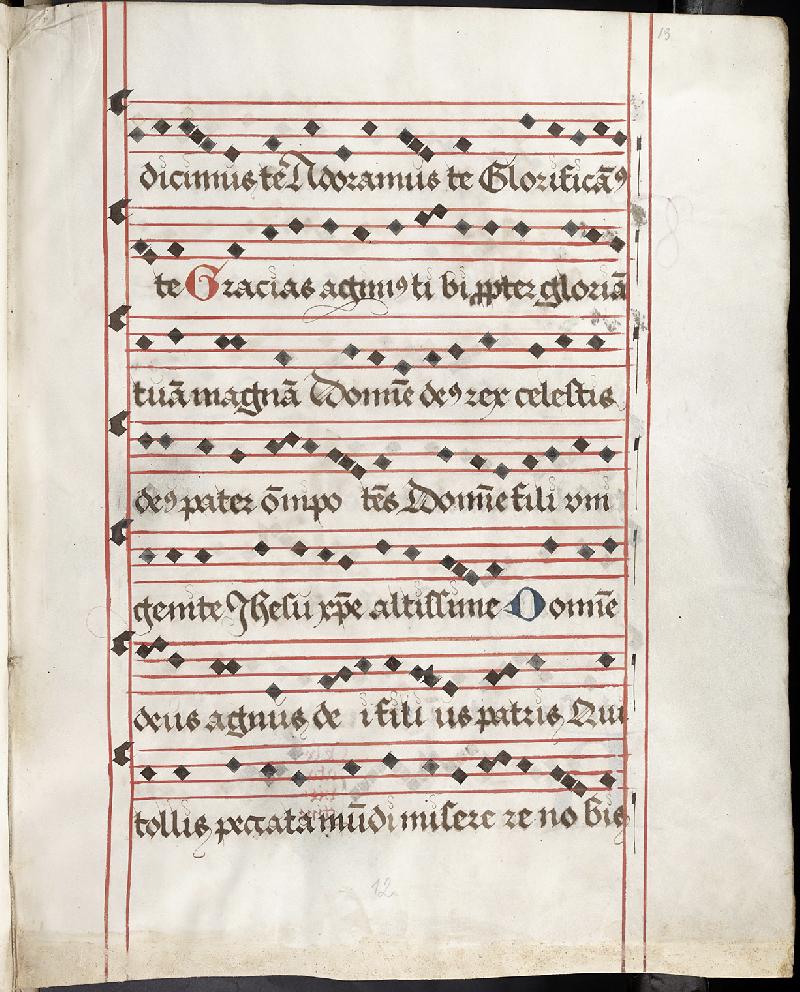 13
dicimus te Adoramus te Glorificā⁹
te Gracias agim⁹ ti bi ꝓpter gloriā
tuā magnā Domīe de⁹ rex celestis
de⁹ pater ōmpo tēs Domīe fili vni
genite Jhesu xp̄e altissime Domīe
deus agnus de i fili us patris Qui
tollis peccata mūdi misere re no bis
12